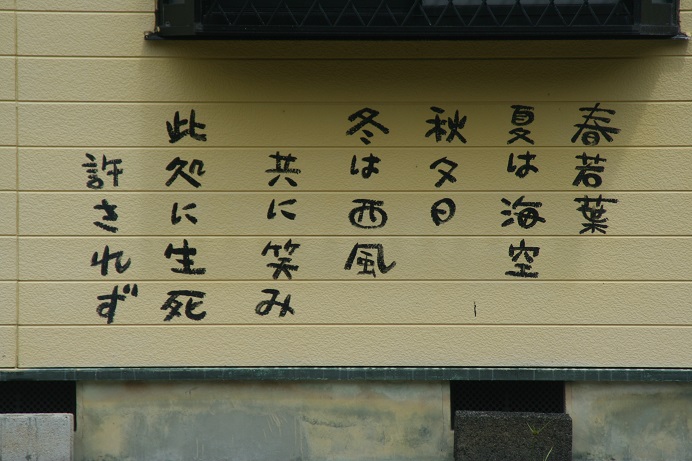 春若葉
夏は海空
秋夕日
冬は西風
共に笑み
此処に生死
許されず